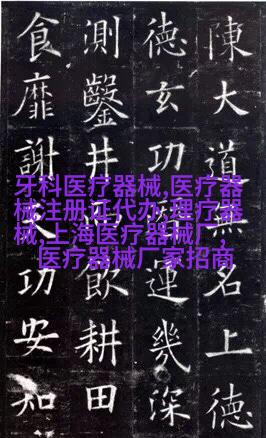 陳大道無名上德
德玄功運幾深
測鑿井飲耕田
食靡謝功安知
牙科医疗器械,医疗器
械注册证代办,理疗器
械,上海医疗器械厂,
医疗器械厂家招商